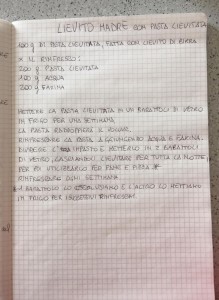 LIEVITO MADRE CON PASTA LIEVITATA
100 g DI PASTA LIEVITATA, FATTA CON LIEVITO DI BIRRA
X IL RINFRESCO:
200 g PASTA LIEVITATA
100 g ACQUA
200 g FARINA
METTERE LA PASTA LIEVITATA IN UN BARATTOLO DI VETRO
IN FRIGO PER UNA SETTIMANA
LA PASTA
RINFRESCARE LA PASTA AGGIUNGENDO ACQUA E FARINA.
DIVIDERE L'IMPASTO E METTERLO IN 2 BARATTOLI
DI VETRO, LASCIANDOLI LIEVITARE PER TUTTA LA NOTTE,
PER POI UTILIZZARLO PER PANE E PIZZA *
RINFRESCARE OGNI SETTIMANA
1 BARATTOLO LO E L'ALTRO LO METTIAMO
IN FRIGO PER I RINFRESCHI